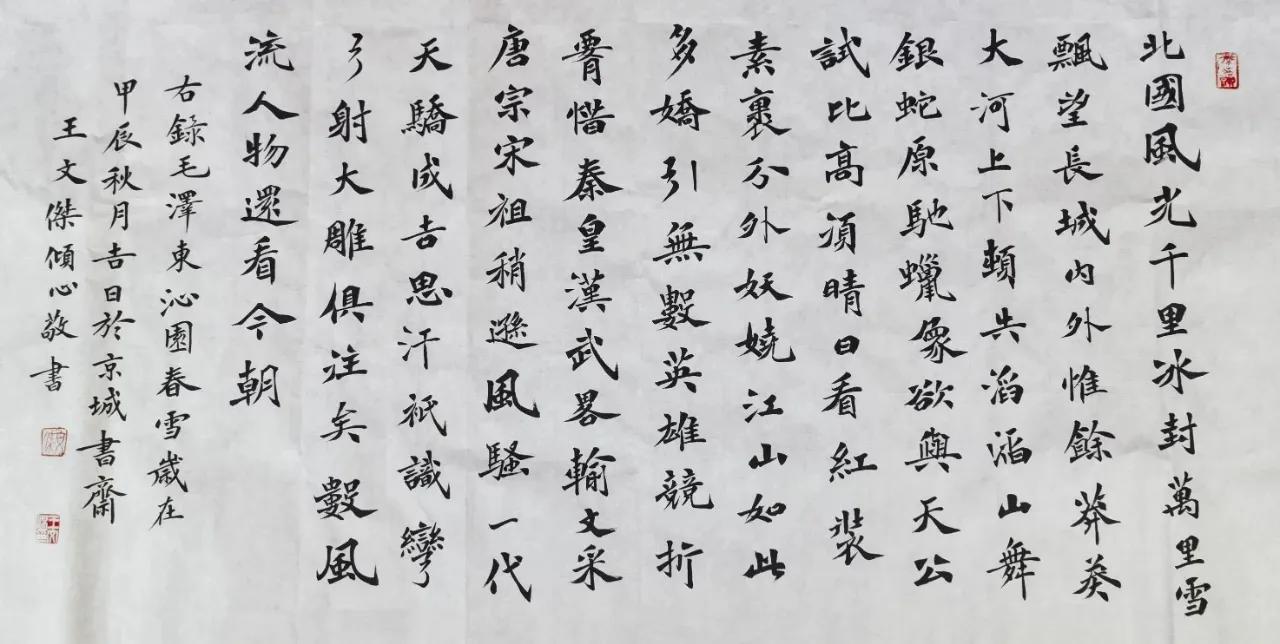 北國風光千里冰封萬里雪
飄望長城內外惟餘莽莽
大河上下頓失滔滔山舞
銀蛇原馳蠟象欲與天公
試比高須晴日看紅裝
素裹分外妖嬈江山如此
多嬌引無數英雄競折
腰惜秦皇漢武畧輸文采
唐宗宋祖稍遜風騷一代
天驕成吉思汗祇識彎
弓射大雕俱往矣數風
流人物還看今朝
右錄毛澤東沁園春雪歲在
甲辰秋月吉日於京城書齋
王文傑傾心敬書